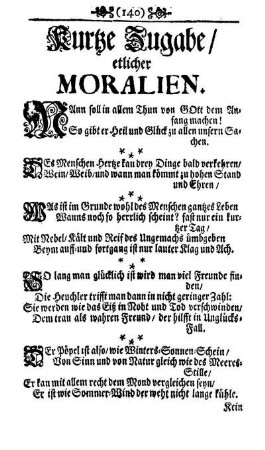 (140)
Kurtze Zugabe/
etlicher
MORALIEN.
MAnn soll in allem Thun von GOtt dem An-
fang machen!
So gibt er Heil und Glück zu allen unsern Sa-
chen.
* * *
DEs Menschen-Hertze kan drey Dinge bald verkehren/
Wein/ Weib/ und wann man kömmt zu hohen Stand
und Ehren/
* * *
WAs ist im Grunde wohl des Menschen gantzes Leben
Wanns noch so herrlich scheint? fast nur ein kur-
tzer Tag/
Mit Nebel/ Kält und Reif des Ungemachs ümbgeben
Beym auff- und fortgang ist nur lauter Klag und Ach.
* * *
SO lang man glücklich ist wird man viel Freunde fin-
den/
Die Heuchler trifft man dann in nicht geringer Zahl:
Sie werden wie das Eiß in Noht und Tod verschwinden/
Dem trau als wahren Freund/ der hilfft in Unglücks-
Fall.
* * *
DEr Pöpel ist also/ wie Winters-Sonnen-Schein/
Von Sinn und von Natur gleich wie des Meeres-
Stille/
Er kan mit allem recht dem Mond verglichen seyn/
Er ist wie Sommer-Wind der weht nicht lange kühle.
Kein